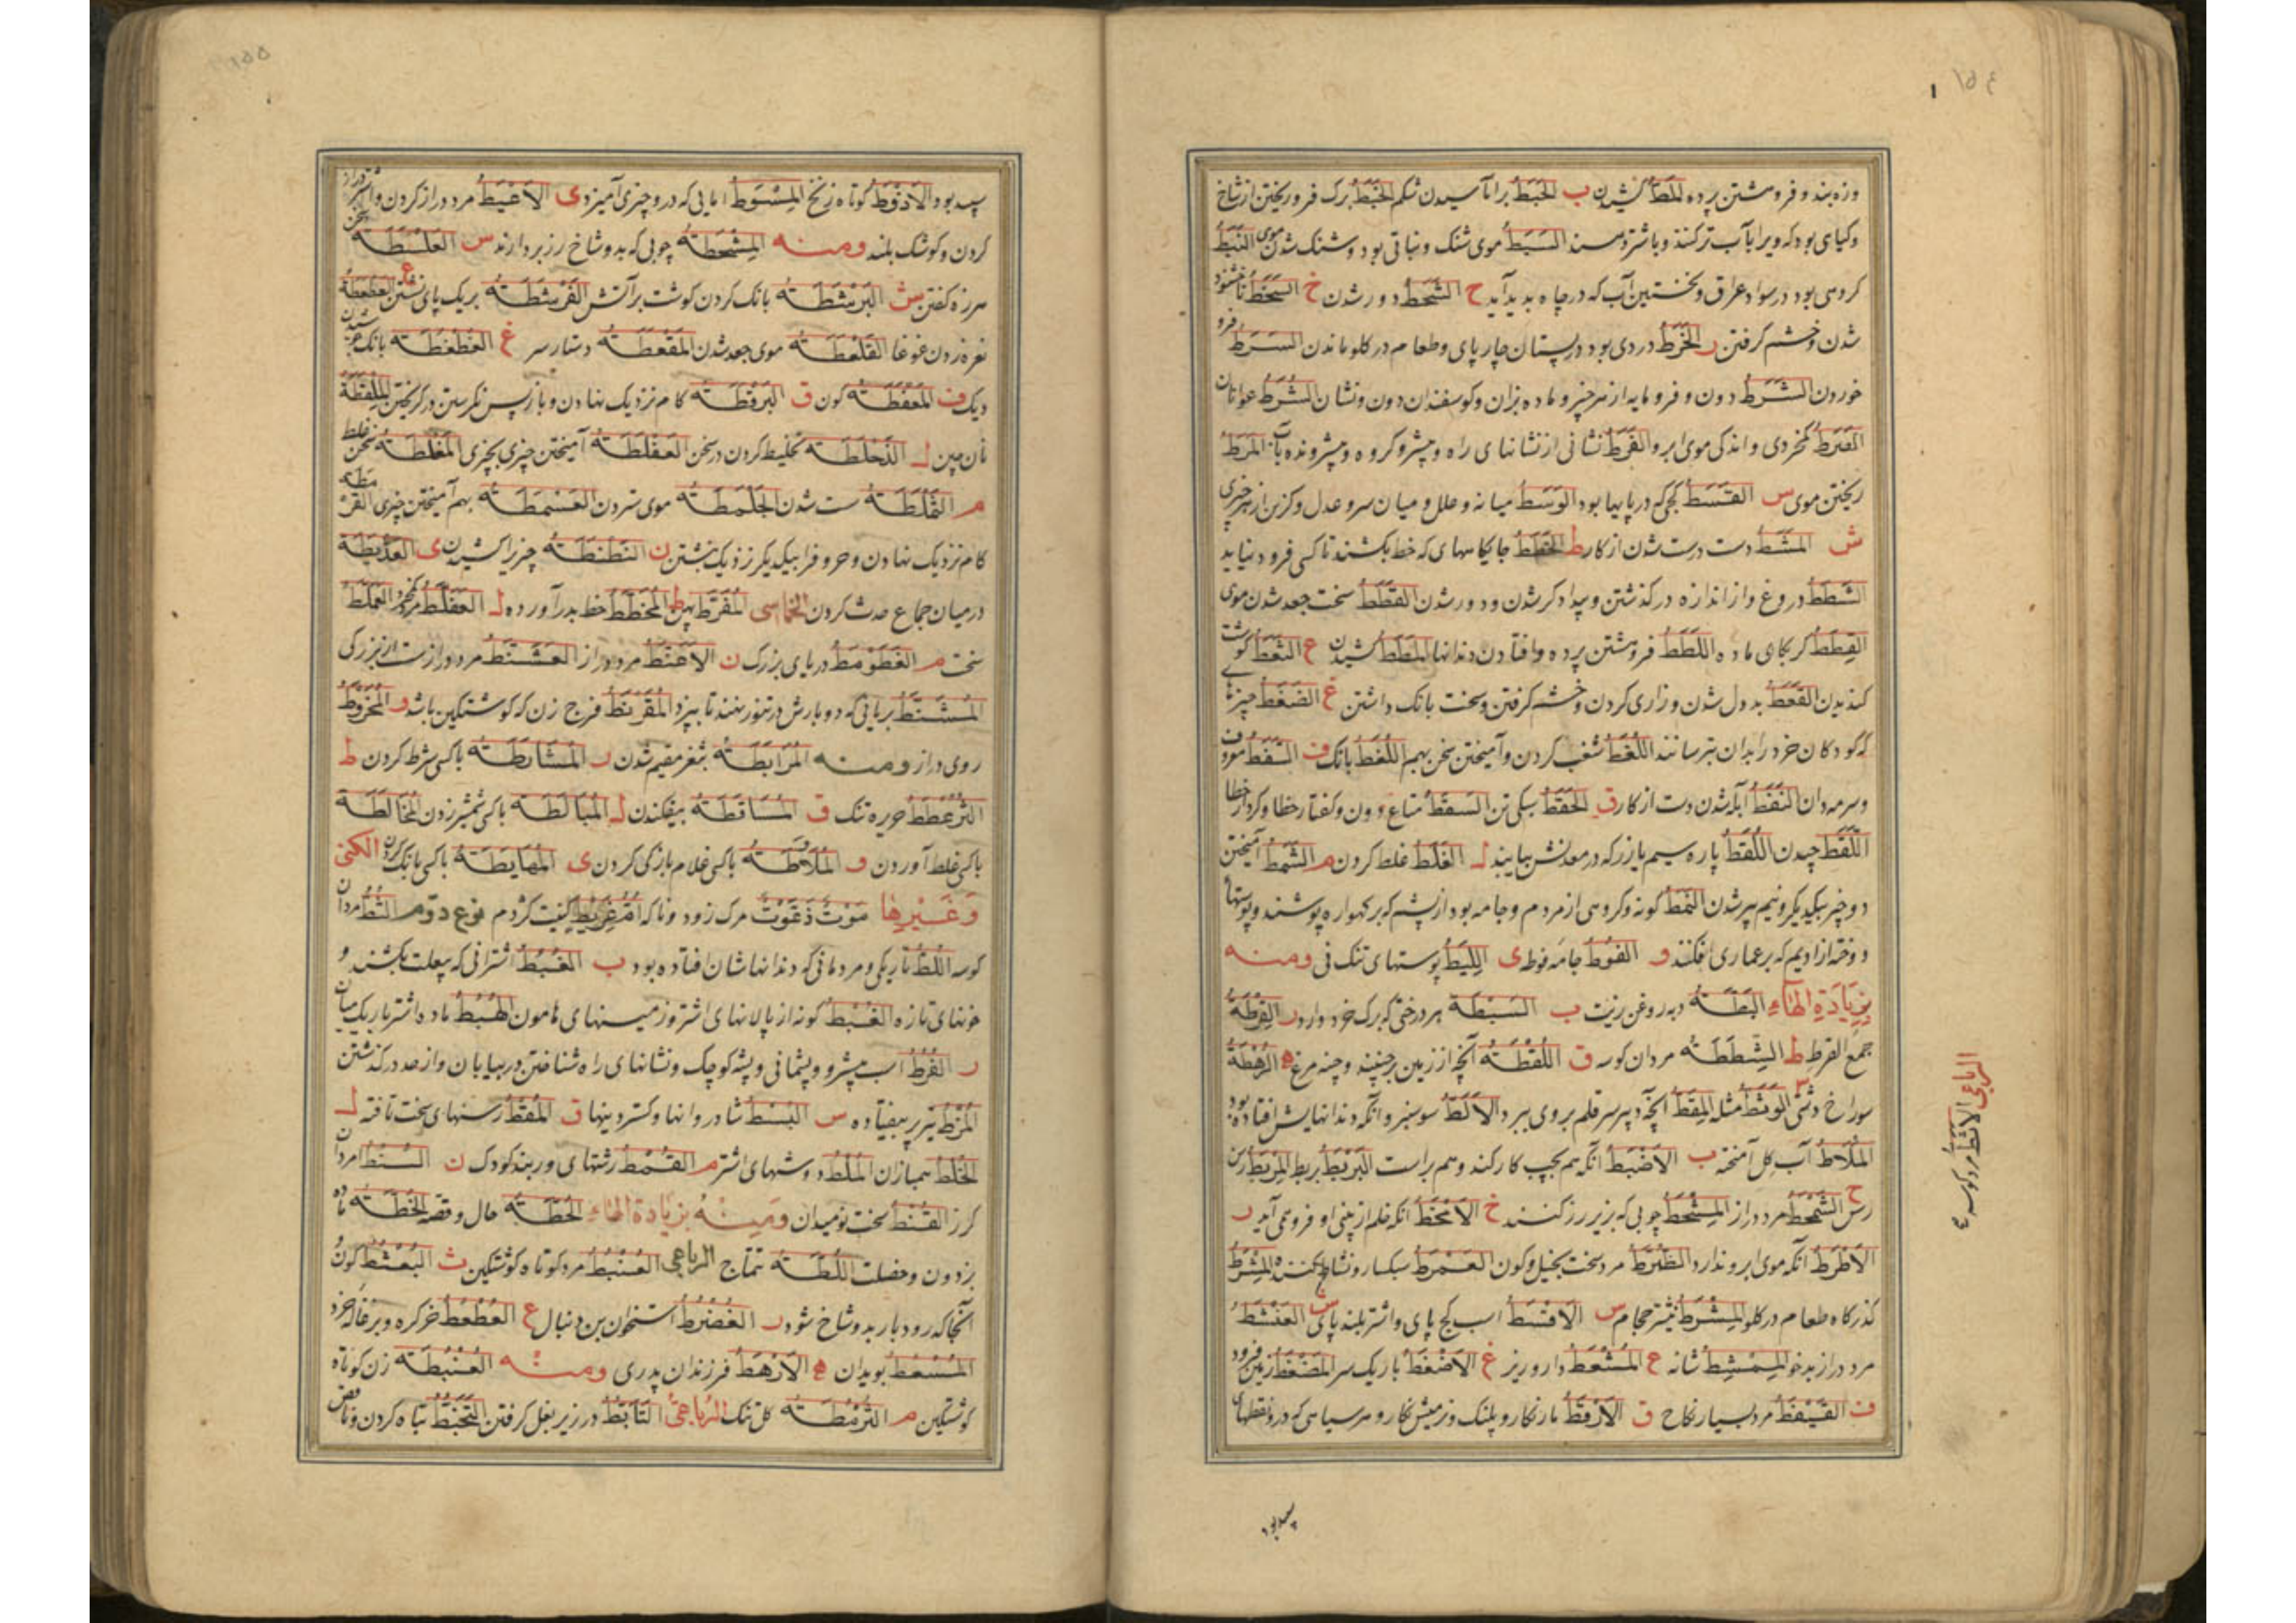 ١٥٤
وزه بند و فروهشتن پرده المَطُّ کشیدن ب الخَبَطُ برآماسیدن شکم الخَبَطُ برک فرو ریختن از شاخ
و کیای بود که ویرا بآب تر کنند و باشتر دهند السَبَطُ موی شنک و نباتی بود و شنک شدن موی النَبَطُ
کروهی بود در سواد عراق و نخستین آب که در چاه بدید آید ح الشَحَطُ دور شدن خ السَخَطُ ناخشنود
شدن و خشم کرفتن ر الخَرَطُ دردی بود در پستان چارپای و طعام در کلو ماندن السَرَطُ فرو
خوردن الشَرَطُ دون و فرومایه از هر چیز و ماده بزان و کوسفندان دون و نشان الشُرَطُ عوانان
خردی و اندکی موی ابرو الفَرَطُ نشانی از نشانهای راه و پیشرو کروه و پیشرونده بآب المَرَطُ
ریختن موی س القَسَطُ کجی که در پایها بود الوَسَطُ میانه و عدل و میان سرو عدل و کزین از هر چیزی
ش المَشَطُ دست درشت شدن از کار ط الخِطَطُ جایکاههای که خط بکشند تا کسی فرود نیاید
الشَطَطُ دروغ و از اندازه درکذشتن و بیدادکر شدن و دور شدن القَطَطُ سخت جعد شدن موی
القِطَطُ کربکان ماده اللَطَطُ فروهشتن پرده و افتادن دندانها المَطَطُ کشیدن ع الثَعَطُ کوشت
کندیدن القَعَطُ بددل شدن و زاری کردن و خشم کرفتن و سخت بانک داشتن غ الضَغَطُ چیزها
که کودکان خرد را بدان بترسانند اللَغَطُ شغب کردن و آمیختن سخن بهم اللَغَطُ بانک ف السَفَطُ معروف
و سرمه دان النَفَطُ آبله شدن دست از کار ق الحَقَطُ سبکی تن السَقَطُ متاع دون و کفتار خطا و کردار خطا
اللَقَطُ چیدن اللُقَطُ پاره سیم یا زر که در معدنش بیابند ل الغَلَطُ غلط کردن م الشَمَطُ آمیختن
دو چیز بیکدیکر و نیم پیر شدن النَمَطُ کونه و کروهی از مردم و جامه بود از پشم که بر کهواره پوشند و پوستها
دوخته از ادیم که بر عماری افکنند و الفُوَطُ جامه فوطه ی اللِیَطُ پوستهای تنک نی ومنه
بزیادة الهاء البَطَّةُ دبه روغن زیت ب السَبَطَةُ هر درختی که برک خرد دارد ر القِرَطَةُ
جمع القرط ط الشِطَطَةُ مردان کوسه ق اللُقَطَةُ آنچه از زمین برچینند و چنه مرغ ه الرُهَطَةُ
سوراخ دشتی مثله المِقَطُّ آنچه بر سر قلم بروی ببرد الاَلَطُّ سوسبز و آنکه دندانهایش افتاده بود
المِلاَطُ آب کل آمخته ب الاَضبَطُ آنکه هم بچپ کار کند و هم براست البَرْبَطُ بربط المِرْبَطُ رسن
رس الشَمْحَطُ مرد دراز المِشْحَطُ چوبی که بزیر رز کنند خ الاَمْخَطُ آنکه خلم از بینی او فرو می آید ر
الاَطْرَطُ آنکه موی ابرو ندارد مرد سخت بخیل و کون العَمَرَّطُ سبکسار و نشاط کننده
کذرکاه طعام در کلو المِشْرَطُ نیشتر حجام س الاَقْسَطُ اسب کج پای و اشتر بلند پای العَنْشَطُ
مرد دراز بدخو المِمْشِطُ شانه ع المُسْعُطُ دارو ریز غ الاَضْغَطُ باریک سر المَضْغَطُ زمین فرود
ف القَیْفَطُ مرد بسیار نکاح ق الاَرْقَطُ مار نکارو پلنک و نر میش نکارو هر سیاهی که درو نقطهای
سپید بود
الرباعی الاثط مرد کوسه
١٥٥
سپید بود الاَذْوَطُ کوتاه زنخ المِسْوَطُ آنایی که درو چیزی آمیزد ی الاَعْیَطُ مرد دراز کردن و اشتر دراز
کردن و کوشک بلند ومنه المِشْحَطَةُ چوبی که بدو شاخ رز بردارند س العَلْسَطَةُ سخن
هرزه کفتن ش البَرْشَطَةُ بانک کردن کوشت بر آتش القَرْشَطَةُ بر یک پای نشستن ع العَطْعَطَةُ
نعره زدن غوغا القَلْعَطَةُ موی جعد شدن المِقْعَطَةُ دستار سر غ الغَطْغَطَةُ بانک جوشیدن
دیک ف المَعْفَطَةُ کون ق البَرْقَطَةُ کام نزدیک نهادن و باز پس نکرستن در کریختن المِلْقَطَةُ
نان چین ل الذَحْلَطَةُ تخلیط کردن در سخن العَفْلَطَةُ آمیختن چیزی بچیزی المَغْلَطَةُ سخن غلط
م الثَمْلَطَةُ سست شدن الجَلْمَطَةُ موی ستردن العَسْمَطَةُ بهم آمیختن چیزی القَرْمَطَةُ
کام نزدیک نهادن و حروف را بیکدیکر نزدیک نبشتن ن النَطْنَطَةُ چیز را کشیدن ی العَذْیَطَةُ
در میان جماع حدث کردن الخماسی المُفَرْطَحُ پهن ط المُخَطَّطُ خط بدر آورده ل العَفَلَّطُ العَمَلَّطُ
سخت م الغَطَوْمَطُ دریای بزرک ن الاَعْنَطُ مرد دراز العَشَنَّطُ مرد دراز ست از بزرکی
المُشَنَّطُ بریانی که دو بارش در تنور نهند تا بپزد المُقَرْنَطُ فرج زن که کوشتکین باشد و المُخْرَوِّطُ
روی دراز ومنه المُرَابَطَةُ بثغر مقیم شدن ر المُشَارَطَةُ با کسی شرط کردن ط
الثُرْعُطَطُ حریره تنک ق المُسَاقَطَةُ بیفکندن ل المُبَالَطَةُ با کسی شمشیر زدن المُخَالَطَةُ
با کسی غلط آوردن و المُلاَوَطَةُ با کسی غلام بازکی کردن ی المُهَایَطَةُ با کسی بانک کردن الکنی
وغیرها مَوْتٌ ذَعْوَطٌ مرک زود و ناکه اُمُّ عِرْیَطٍ کنیت کژدم نوع دوم الثُطُّ مردان
کوسه اللُطُّ تاریکی و مردمانی که دندانهاشان افتاده بود ب العُبُطُ اشترانی که بیعلت بکشند و
خونهای تازه الغُبُطُ کونه از پالانهای اشتر و زمینهای هامون الهُبُطُ ماده اشتر باریک میان
ر الفُرُطُ اسب پیشرو و پشیمانی و پشه کوچک و نشانهای راه شناختن در بیابان و از حد درکذشتن
المُرُطُ تیر پر بیفتاده س البُسُطُ شادروانها و کسترونیها ق المُقُطُ رسنهای سخت تافته ل
الخُلُطُ همبازان المُلُطُ دوشهای اشتر م القُمُطُ رشتهای و ربند کودک ن السُنُطُ مردان
کرز القُنُطُ سخت نومیدان ومنه بزیادة الهاء الخُطَّةُ حال و قصه الخُطَّةُ ماده
بز دون و خصلت اللُطَّةُ تتماج الرباعی العُنْبُطُ مرد کوتاه کوشتکین ث البُعْثُطُ کون
آنجا که رودبار بدو شاخ شود ر الغُضْرُطُ استخوان بن دنبال ع العُطْعُطُ خر کره و بزغاله خرد
المُسْعُطُ بویدان ه الاَرْهُطُ فرزندان پدری ومنه العُنْبُطَةُ زن کوتاه
کوشتکین م الثُرْمُطَةُ کل تنک الرباعی التَأَبُّطُ در زیر بغل کرفتن التَخَبُّطُ تباه کردن و ناقص